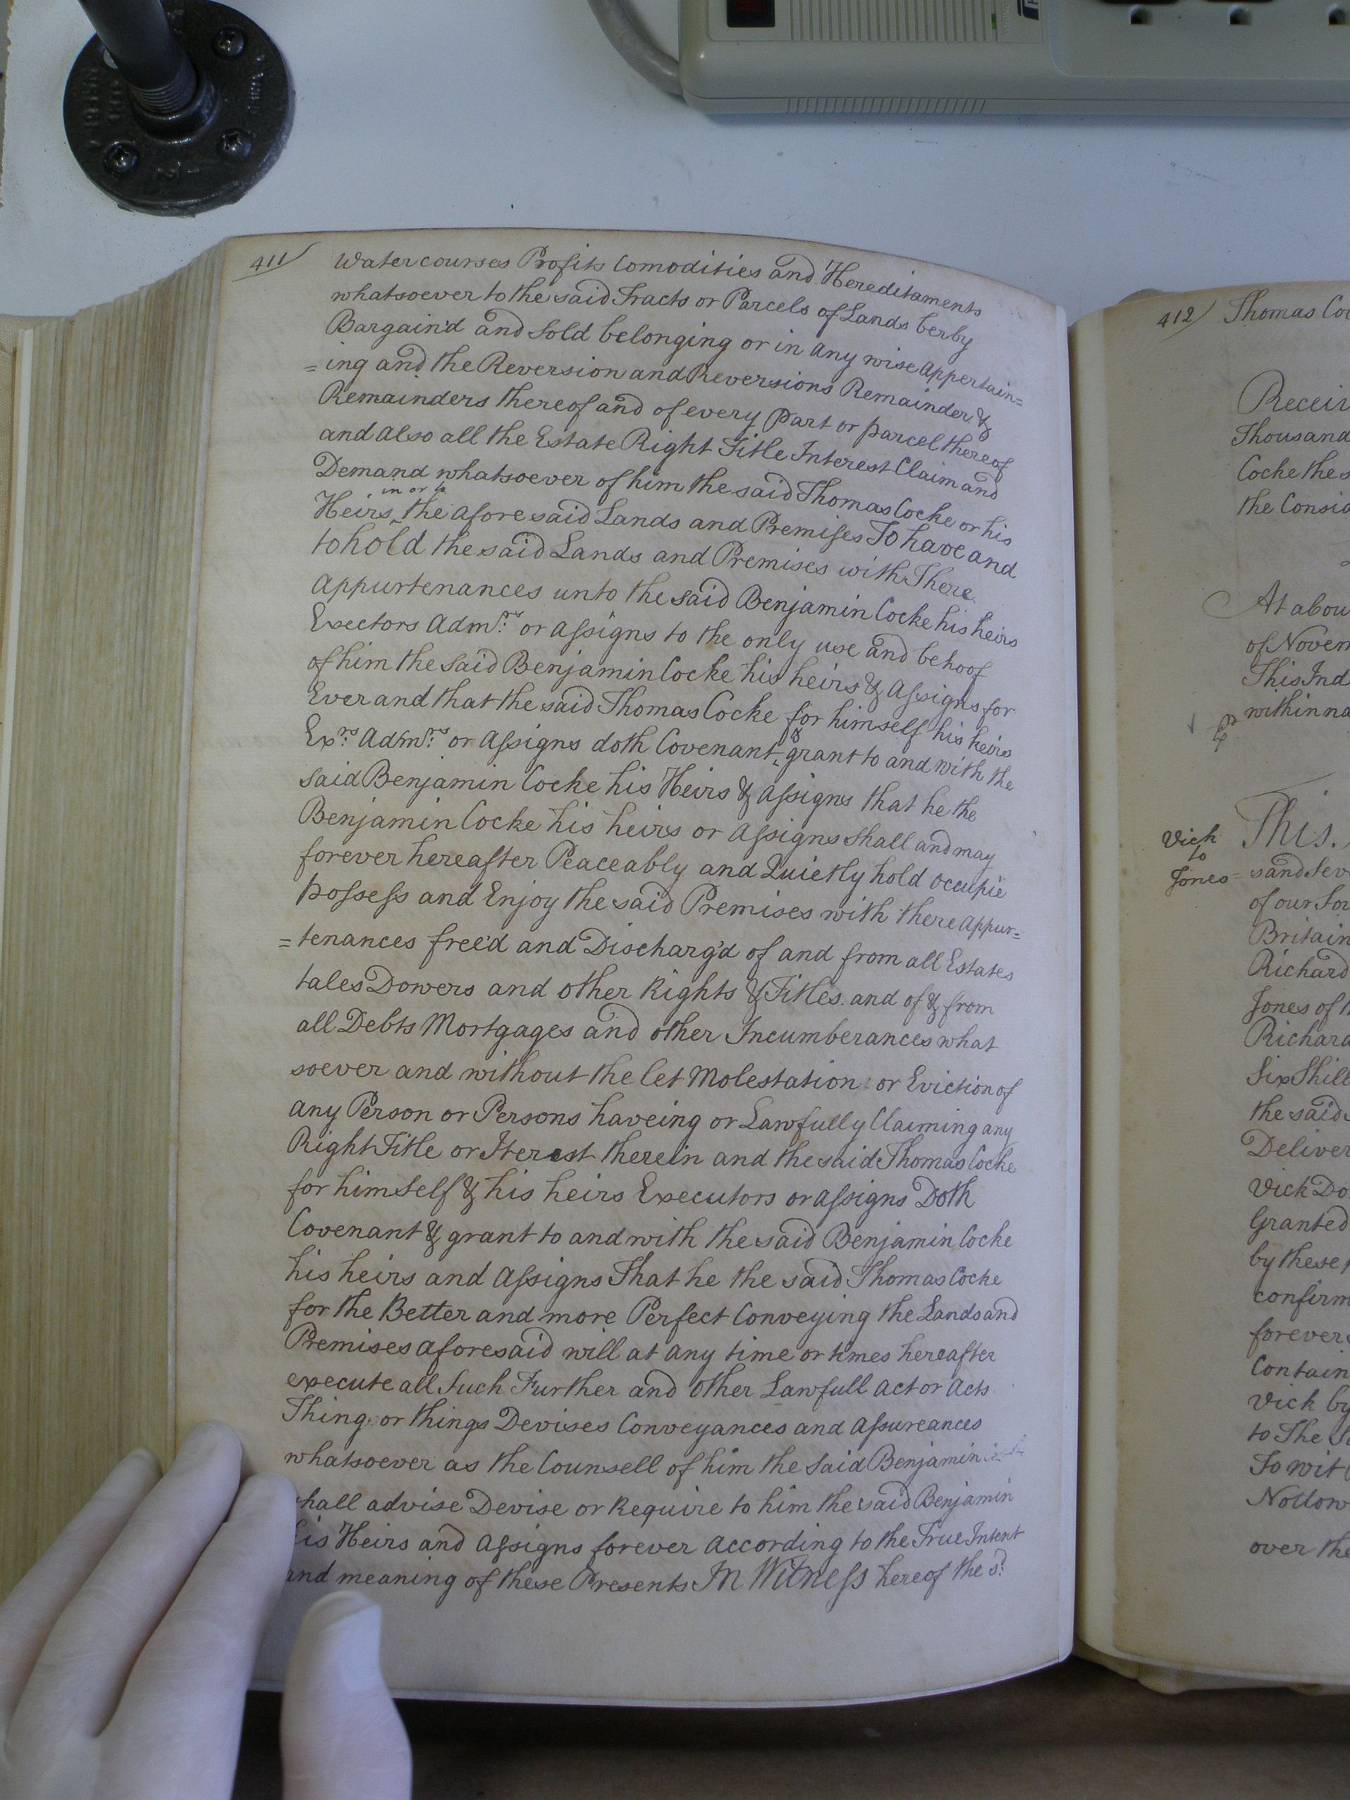 411
Watercourses Profits Comodities and Hereditaments
whatsoever to the said Tracts or Parcels of Lands herby
Bargain'd and Sold belonging or in any wise appertain=
=ing and the Reversion and Reversions Remainder &
Remainders thereof and of every part or parcel thereof
and also all the Estate Right Title Interest Claim and
Demand whatsoever of him the said Thomas Cocke or his
in or to
Heirs ‸ the afore said Lands and Premises To have and
to hold the said Lands and Premises with There
appurtenances unto the said Benjamin Cocke his heirs
Exectors Adm.rs or assigns to the only use and behoof
of him the said Benjamin Cocke his heirs & assigns for
Ever and that the said Thomas Cocke for himself his heirs
Ex.rs Adm.rs or assigns doth Covenant ‸ & grant to and with the
said Benjamin Cocke his Heirs & assigns that he the
Benjamin Cocke his heirs or assigns shall and may
forever hereafter Peaceably and Quietly hold occupie
possess and Enjoy the said Premises with there appur=
=tenances free'd and Discharg'd of and from all Estates
tales Dowers and other Rights & Titles and of & from
all Debts Mortgages and other Incumberances what
soever and without the let Molestation or Eviction of
any Person or Persons haveing or Lawfully Claiming any
Right Title or Iterest therein and the said Thomas Cocke
for himself & his heirs Executors or assigns Doth
Covenant & grant to and with the said Benjamin Cocke
his heirs and assigns That he the said Thomas Cocke
for the Better and more Perfect Conveying the Lands and
Premises aforesaid will at any time or times hereafter
execute all Such Further and other Lawfull act or acts
Thing or things Devises Conveyances and assureances
whatsoever as the Counsell of him the said Benjamin
shall advise Devise or Require to him the said Benjamin
his Heirs and assigns forever according to the True Intent
and meaning of these Presents In Witness hereof the s.d
412
Thomas Co
Receiv
Thousand
Cocke the s
the Consid
At a Cou
of Novem
This Ind
within na
Vick
to
Jones
This
sand Sev
of our Sov
Britain
Richard
Jones of
Richard
Six Shill
the said
Deliver
Vick Do
Granted
by these
confirm
forever
Contain
Vick by
to The
To wit
Nottow
over the